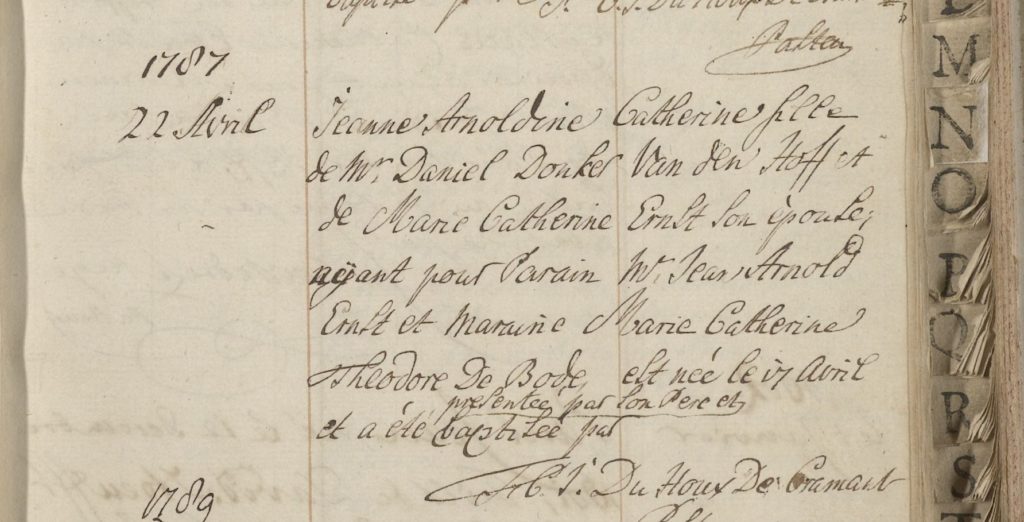 Pasteur
1787
22 Avril Jeanne Arnoldine Catherine fille
de Mr. Daniel Donker Van den Hoff et
de Marie Catherine Ernst son épouse,
aÿant pour Parain Mr. Jean Arnold
Ernst et maraine Marie Catherine
Theodore De Bode, est née le 17 Avril
presentée par son Pere et
et a été baptisée par
Du Houx De Cramant
1789
M
N
O
P
Q
R
S
T